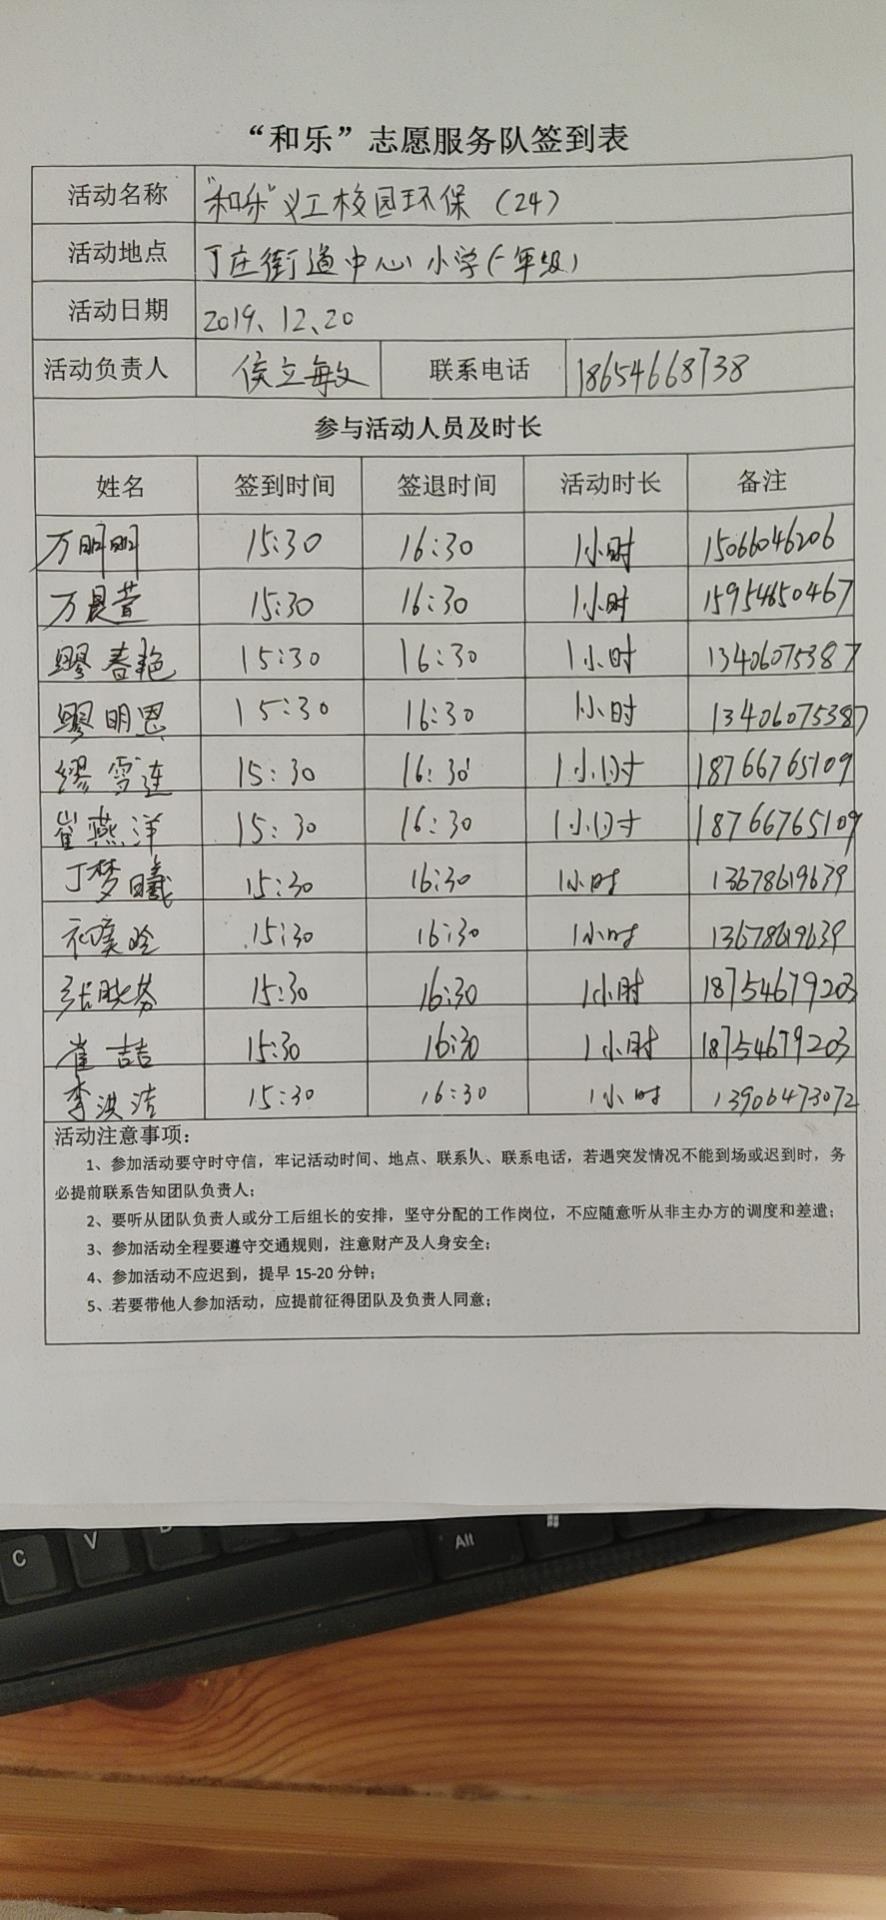 “和乐”志愿服务队签到表
活动名称 “和乐”义工校园环保（24）
活动地点 丁庄街道中心小学（一年级）
活动日期 2019、12、20
活动负责人 侯立敏 联系电话 18654668738
参与活动人员及时长
姓名 签到时间 签退时间 活动时长 备注
万明明 15:30 16:30 1小时 15066046206
万晨萱 15:30 16:30 1小时 15954650467
缪春艳 15:30 16:30 1小时 13406075387
缪明恩 15:30 16:30 1小时 13406075387
缪雪连 15:30 16:30 1小时 18766765109
崔燕洋 15:30 16:30 1小时 18766765109
丁梦曦 15:30 16:30 1小时 13678619639
15:30 16:30 1小时 13678619639
张晓芬 15:30 16:30 1小时 18754679203
崔喆 15:30 16:30 1小时 18754679203
李洪洁 15:30 16:30 1小时 13906473072
活动注意事项：
1、参加活动要守时守信，牢记活动时间、地点、联系人、联系电话，若遇突发情况不能到场或迟到时，务
必提前联系告知团队负责人；
2、要听从团队负责人或分工后组长的安排，坚守分配的工作岗位，不应随意听从非主办方的调度和差遣；
3、参加活动全程要遵守交通规则，注意财产及人身安全；
4、参加活动不应迟到，提早 15-20 分钟；
5、若要带他人参加活动，应提前征得团队及负责人同意；
C V Alt